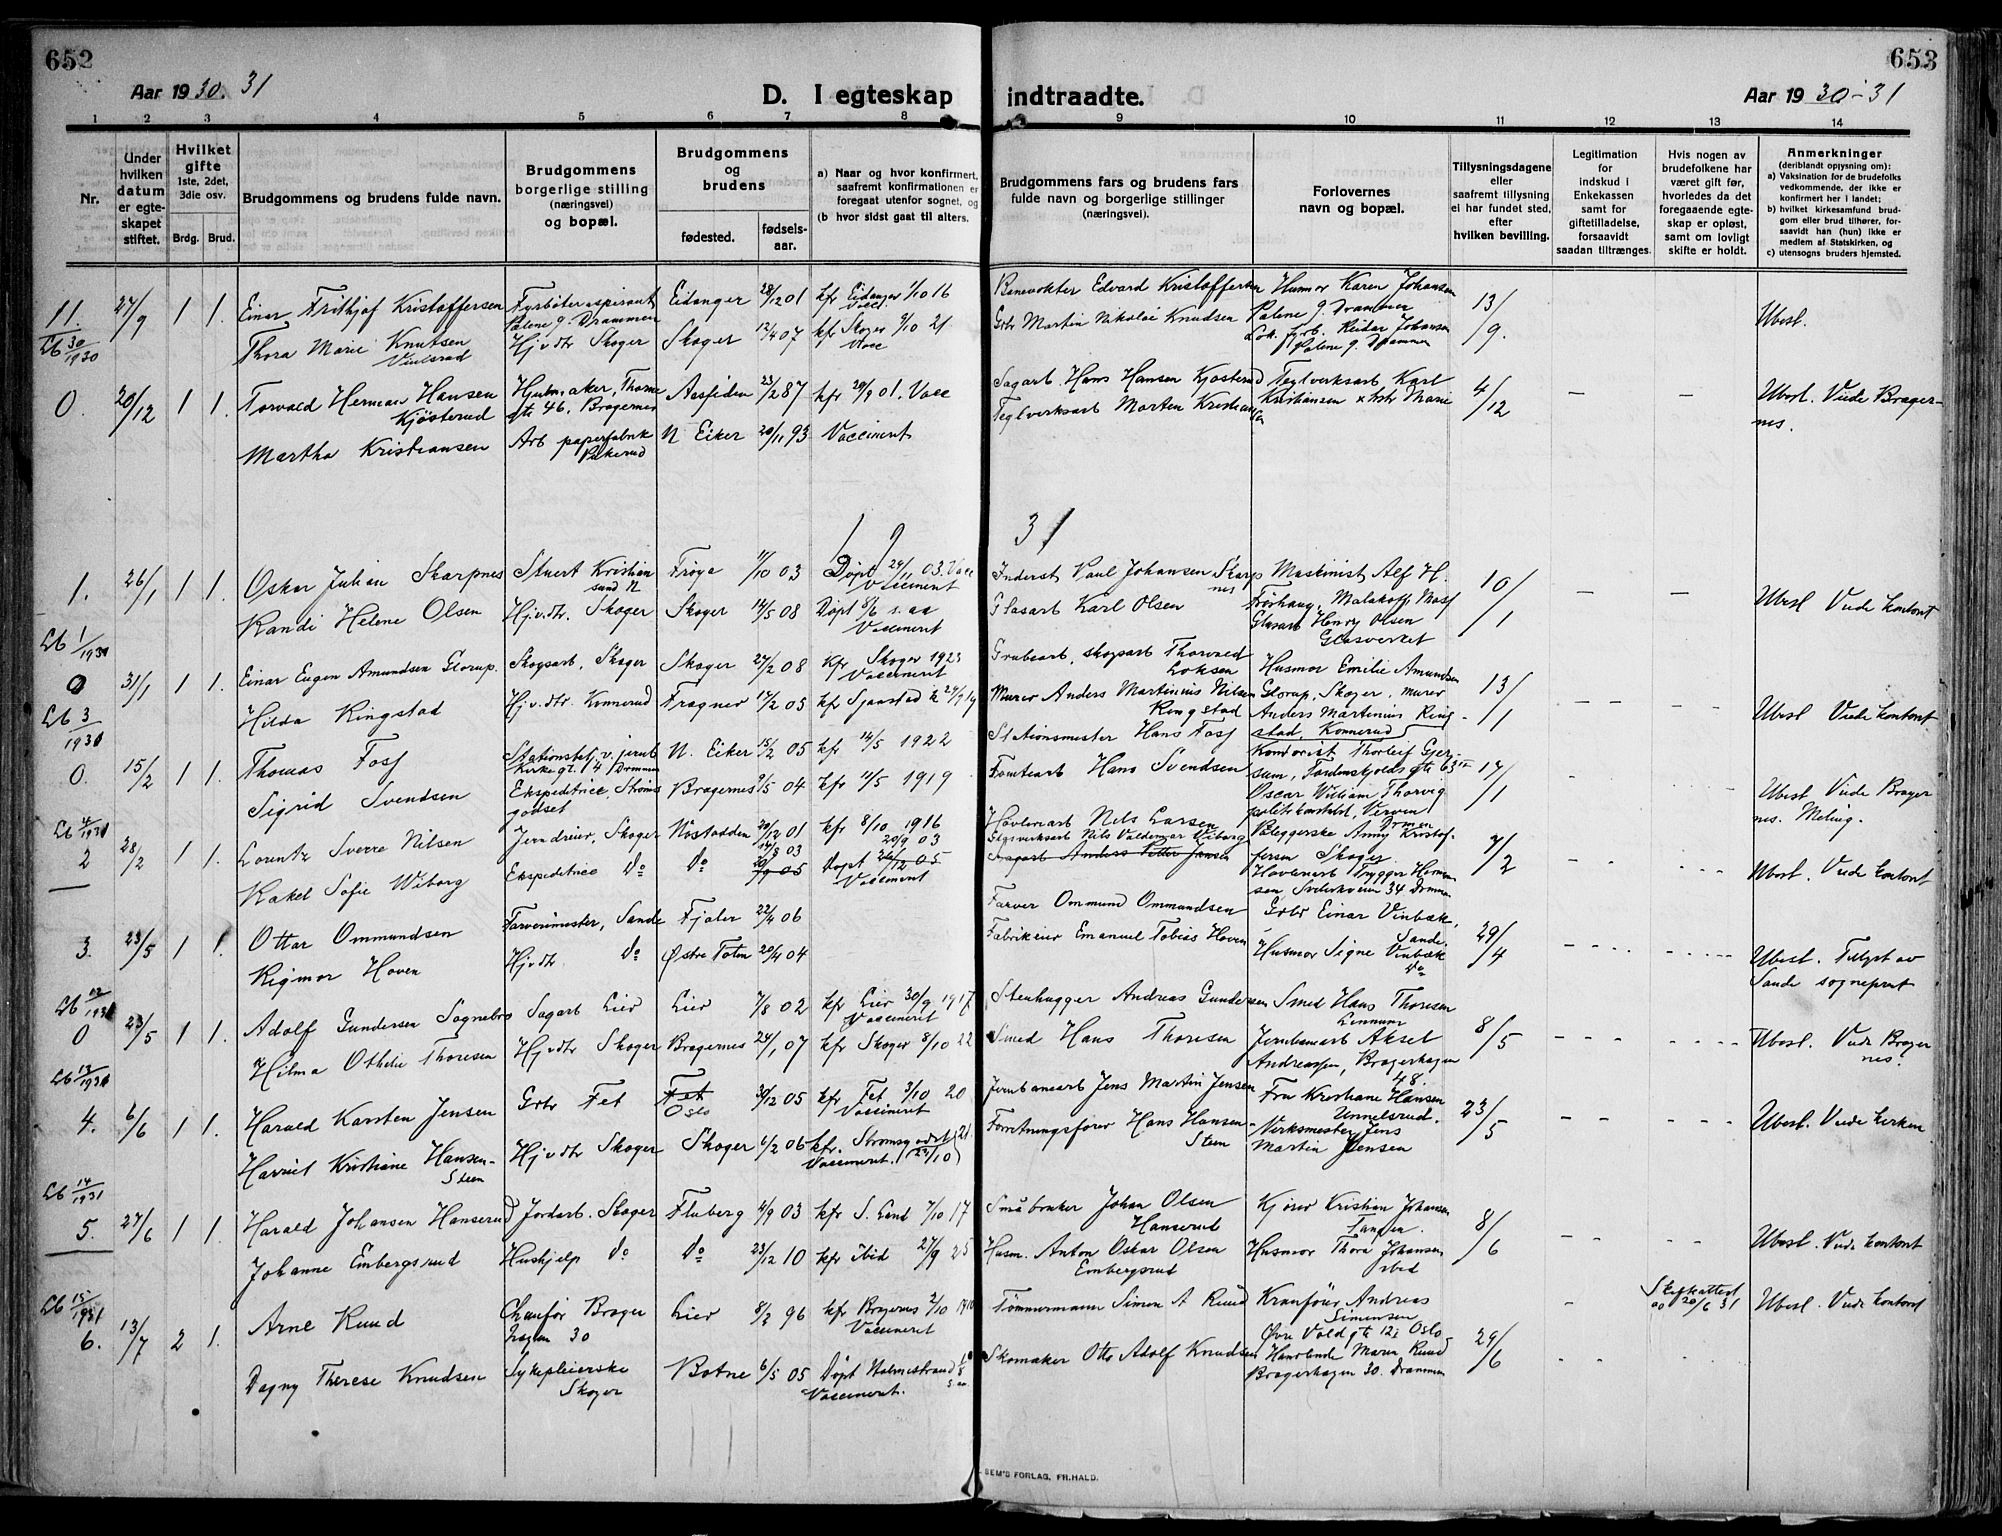 652
653
Aar 1930. 31
D. I egteskap indtraadte.
Aar 1930-31
1 2 3 4 5 6 7 8 9 10 11 12 13 14
Nr.
Under hvilken datum er egteskapet stiftet.
Hvilket gifte 1ste, 2det, 3die osv.
Brdg. Brud.
Brudgommens og brudens fulde navn.
Brudgommens borgerlige stilling (næringsvei) og bopæl.
Brudgommens og brudens
fødested.
fødselsaar.
a) Naar og hvor konfirmert, saafremt konfirmationen er foregaat utenfor sognet, og
(b hvor sidst gaat til alters.
Brudgommens fars og brudens fars fulde navn og borgerlige stillinger (næringsvei).
Forlovernes navn og bopæl.
Tillysningsdagene eller saafremt tillysning ei har fundet sted, efter hvilken bevilling.
Legitimation for indskud i Enkekassen samt for giftetilladelse, forsaavidt saadan tiltrænges.
Hvis nogen av brudefolkene har været gift før, hvorledes da det foregaaende egteskap er opløst, samt om lovligt skifte er holdt.
Anmerkninger (deriblandt opysning om):
a) Vaksination for de brudefolks vedkommende, der ikke er konfirmert her i landet;
b) hvilket kirkesamfund brudgom eller brud tilhører, forsaavidt han (hun) ikke er medlem af Statskirken, og
c) utensogns bruders hjemsted.
11 27/9 1 1. Einar Frithjof Kristoffersen Fyrbøteraspirant Eidanger 28/12 01 kfr Eidanger 1/10 16 Banevokter Edvard Kristoffersen Husmor Karen Johansen 13/9. Ubesl.
Palene 9. Drammen Vacc. Palene 9. Drammen
Lb 30/1930 Thora Marie Knutsen Hjv.dtr Skoger Skoger 12/4 07 kfr Skoger 5/10 21 Gbr Martin Nikolai Knudsen Lok. fyrb. Reidar Johansen
Vacc Palene 9. Drammen
0. 20/12 1 1. Torvald Herman Hansen Hjulmaker, Thorne Aasfiden 23/2 87 kfr 29/9 01. Vacc Sagarb. Hans Hansen Kjøsterud Teglverksarb. Karl 4/12 – – Ubesl. Viede Bragernes.
Kjøsterud gt. 46. Bragernes Kristiansen x hstr Marie
Martha Kristiansen Arb papirfabrik N Eiker 20/11 93 Vaccinert Teglverksarb Morten Kristiansen
19 31
1. 26/1 1 1. Oskar Julian Skarpnes Stuert Kristiansund N Frøya 11/10 03 Døpt 24/1 03. Vacc Inderst Paul Johansen Skarpnes Maskinist Alf H. 10/1 – – Ubesl Viede kontoret
Vaccinert Frøshaug, Malakoff, Moss
Randi Helene Olsen Hjv.dtr. Skoger Skoger 14/5 08 Døpt 8/6 s. aa Glasarb Karl Olsen Glasarb Henry Olsen
Lb 1/1931 Vaccinert Glasverket
0 31/1 1 1. Einar Eugen Amundsen Glorup. Skogsarb, Skoger Skoger 27/2 08 Kfr Skoger 1923 Grubearb, skogsarb Thorvald Husmor Emilie Amundsen 13/1 Ubesl Viede kontoret
Vaccinert Loksen Glorup, Skoger, murer
Hilda Ringstad Hjv.dtr. Konnerud Fragner 17/2 05 kfr Sjaastad k 29/9 19 Murer Anders Martinius Nilsen Ringstad Anders Martinius Ringstad, Konnerud
Lb 3/1931
0. 15/2 1 1. Thomas Foss Stationsbetj. v. jernb N. Eiker 15/2 05 kfr 14/5 1922 Stationsmester Hans Foss Kontorist Thorleif Gjersum, Tordenskjolds gt. 63 17/1 Ubesl Viede Bragernes. Meling.
Kirkegt. 14 Drammen
Sigrid Svendsen Ekspeditrice, Strømsgodset Bragernes 9/5 04 kfr 11/5 1919 Tomtearb Hans Svendsen Oscar William Thorvig
Lb 4/1931 politikonstabel, Verven
2 28/2 1 1. Lorentz Sverre Nilsen Jerndreier, Skoger Notodden 20/12 01 kfr 8/10 1916 Høvleriarb Nils Larsen Paleggerske Anny Kristoffersen Skoger 7/2 Ubesl. Viede kontoret
Elgsverksarb Nils Valdemar Viborg
Rakel Sofie Wiborg Ekspeditrice do do 14/8 03 Døpt 20/9 03 Sagarb Anders Petter Jansen Høvleriarb Trygger Hermansen Svelvikveien 34 Drmmen
20/9 05 26/12 05 Vaccinert
3. 23/5 1 1. Ottar Ommundsen Farverimester, Sande Fjaler 22/4 06 Farver Ommund Ommundsen Gbr Einar Vinbæk, Sande 29/4 Ubesl. Tillyst av Sande sogneprest
Rigmor Hoven Hjv.dtr. do Østre Toten 20/4 04 Fabrikeier Emanuel Tobias Hoven Husmor Signe Vinbæk do
Lb 12/1931
0 23/5 1 1. Adolf Gundersen Sognebro Sagarb Lier Lier 7/8 02 kfr Lier 30/9 1917 Stenhugger Andreas Gundersen Smed Hans Thoresen 8/5 Ubesl. Viede Bragernes.
Vaccineret Linnum
Hilma Othelie Thoresen Hjv.dtr Skoger Bragernes 24/1 07 kfr Skoger 8/10 22 Smed Hans Thoresen Jernbanearb Aksel Andreassen, Bragerhagen 48.
Lb 13/1931
4. 6/6 1 1. Harald Karsten Jensen Gbr Fet Fet Oslo 30/12 05 kfr Fet 3/10 20 Jernbanearb Jens Martin Jensen Fru Kristiane Hansen 23/5 Ubesl. Viede kirken
Vaccineret Unnelsrud.
Harriet Kristiane Hansen-Steen Hjv.dtr Skoger Skoger 6/2 06 kfr. Strømsgodset (23/10) 21. Forretningsfører Hans Hansen-Steen Verksmester Jens Martin Jensen
Vaccineret.
Lb 14/1931
5. 27/6 1 1. Harald Johansen Hanserud Jordarb. Skoger Fluberg 4/9 03 kfr S. Land 7/10 17 Småbruker Johan Olsen Hanserud Kjører Kristian Johansen Tangen. 8/6 Ubesl. Viede kontoret
Johanne Embergsrud Hushjelp do do 23/12 10 kfr ibid 27/9 25 Husm. Anton Oskar Olsen Embergsrud Husmor Thora Johansen ibid
Lb 15/1931
6. 13/7 2 1. Arne Ruud Chauffør Bragerhagen 30 Lier 8/3 96 kfr Bragernes 2/10 1910 Tømmermann Simen A Ruud Kranfører Andreas Simensen 29/6 Skifteattest 20/6 31 Ubesl. Viede kontoret
Vaccineret Øvre Vold gt. 12, Oslo
Dagny Therese Knudsen Sykepleierske Skoger Botne 6/5 05 Døpt Holmestrand Skomaker Otto Adolf Knudsen Handlende Maren Ruud
Vaccineret. Bragerhagen 30. Drammen
SEM'S FORLAG, FR.HALD.